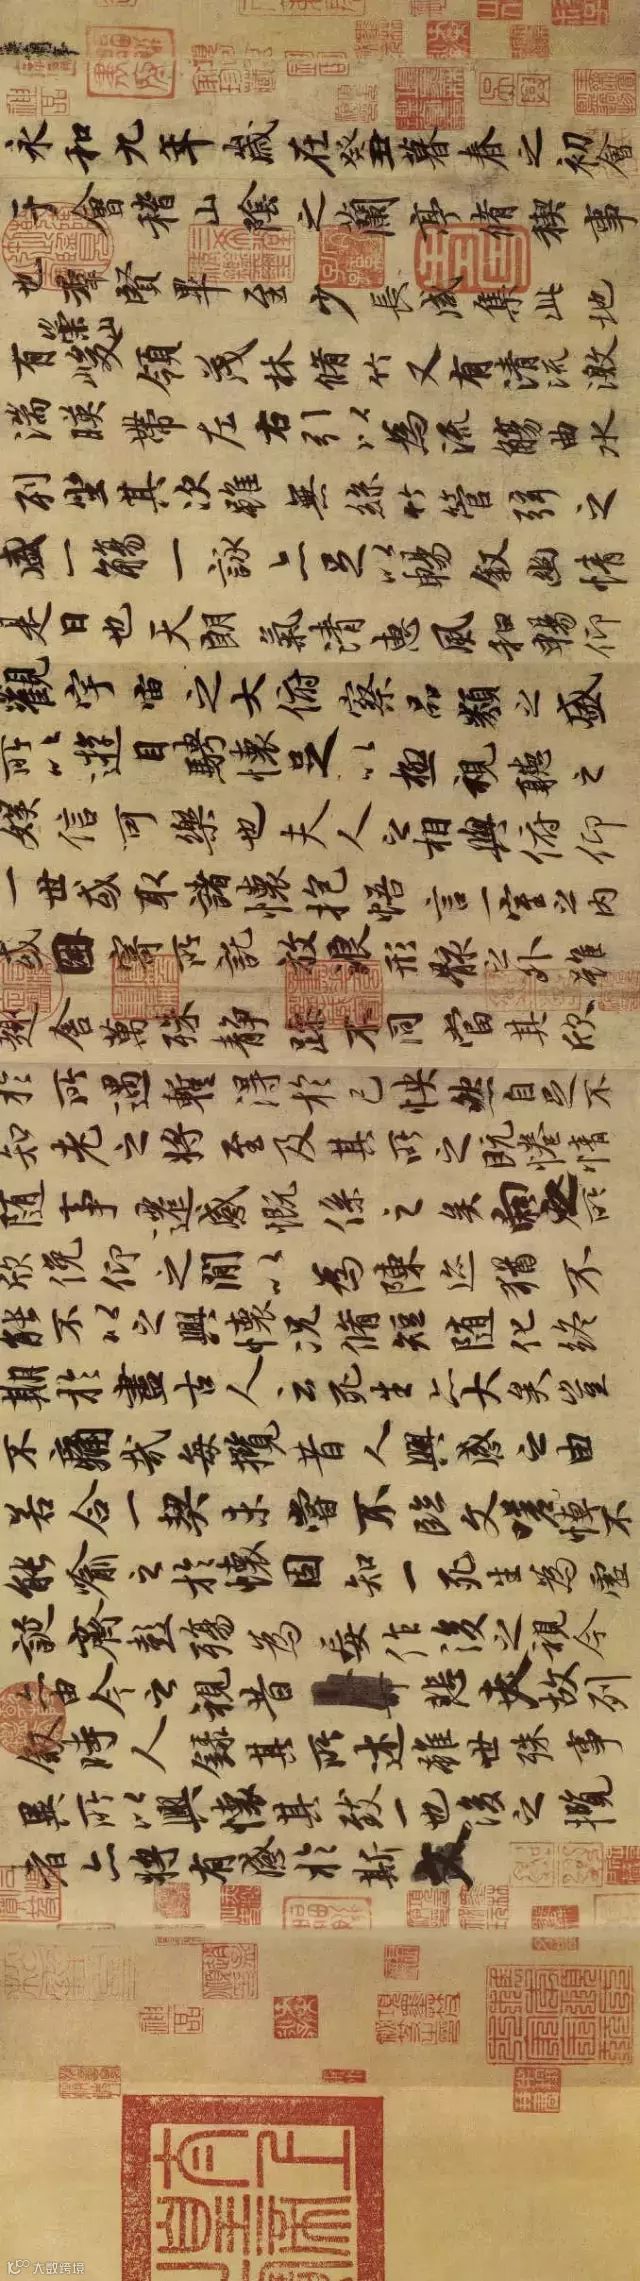 永和九年歲在癸丑暮春之初會
于會稽山陰之蘭亭脩稧事
也羣賢畢至少長咸集此地
有崇山峻領茂林脩竹又有清流激
湍暎帶左右引以為流觴曲水
列坐其次雖無絲竹管弦之
盛一觴一詠亦足以暢敘幽情
是日也天朗氣清惠風和暢仰
觀宇宙之大俯察品類之盛
所以遊目騁懷足以極視聽之
娛信可樂也夫人之相與俯仰
一世或取諸懷抱悟言一室之內
或因寄所託放浪形骸之外雖
趣舍萬殊靜躁不同當其欣
於所遇暫得於己怏然自足不
知老之將至及其所之既惓情
隨事遷感慨係之矣向之所
欣俛仰之閒以為陳迹猶不
能不以之興懷況脩短隨化終
期於盡古人云死生亦大矣豈
不痛哉每攬昔人興感之由
若合一契未嘗不臨文嗟悼不
能喻之於懷固知一死生為虛
誕齊彭殤為妄作後之視今
亦由今之視昔悲夫故列
敘時人錄其所述雖世殊事
異所以興懷其致一也後之攬
者亦將有感於斯文
大数跨境